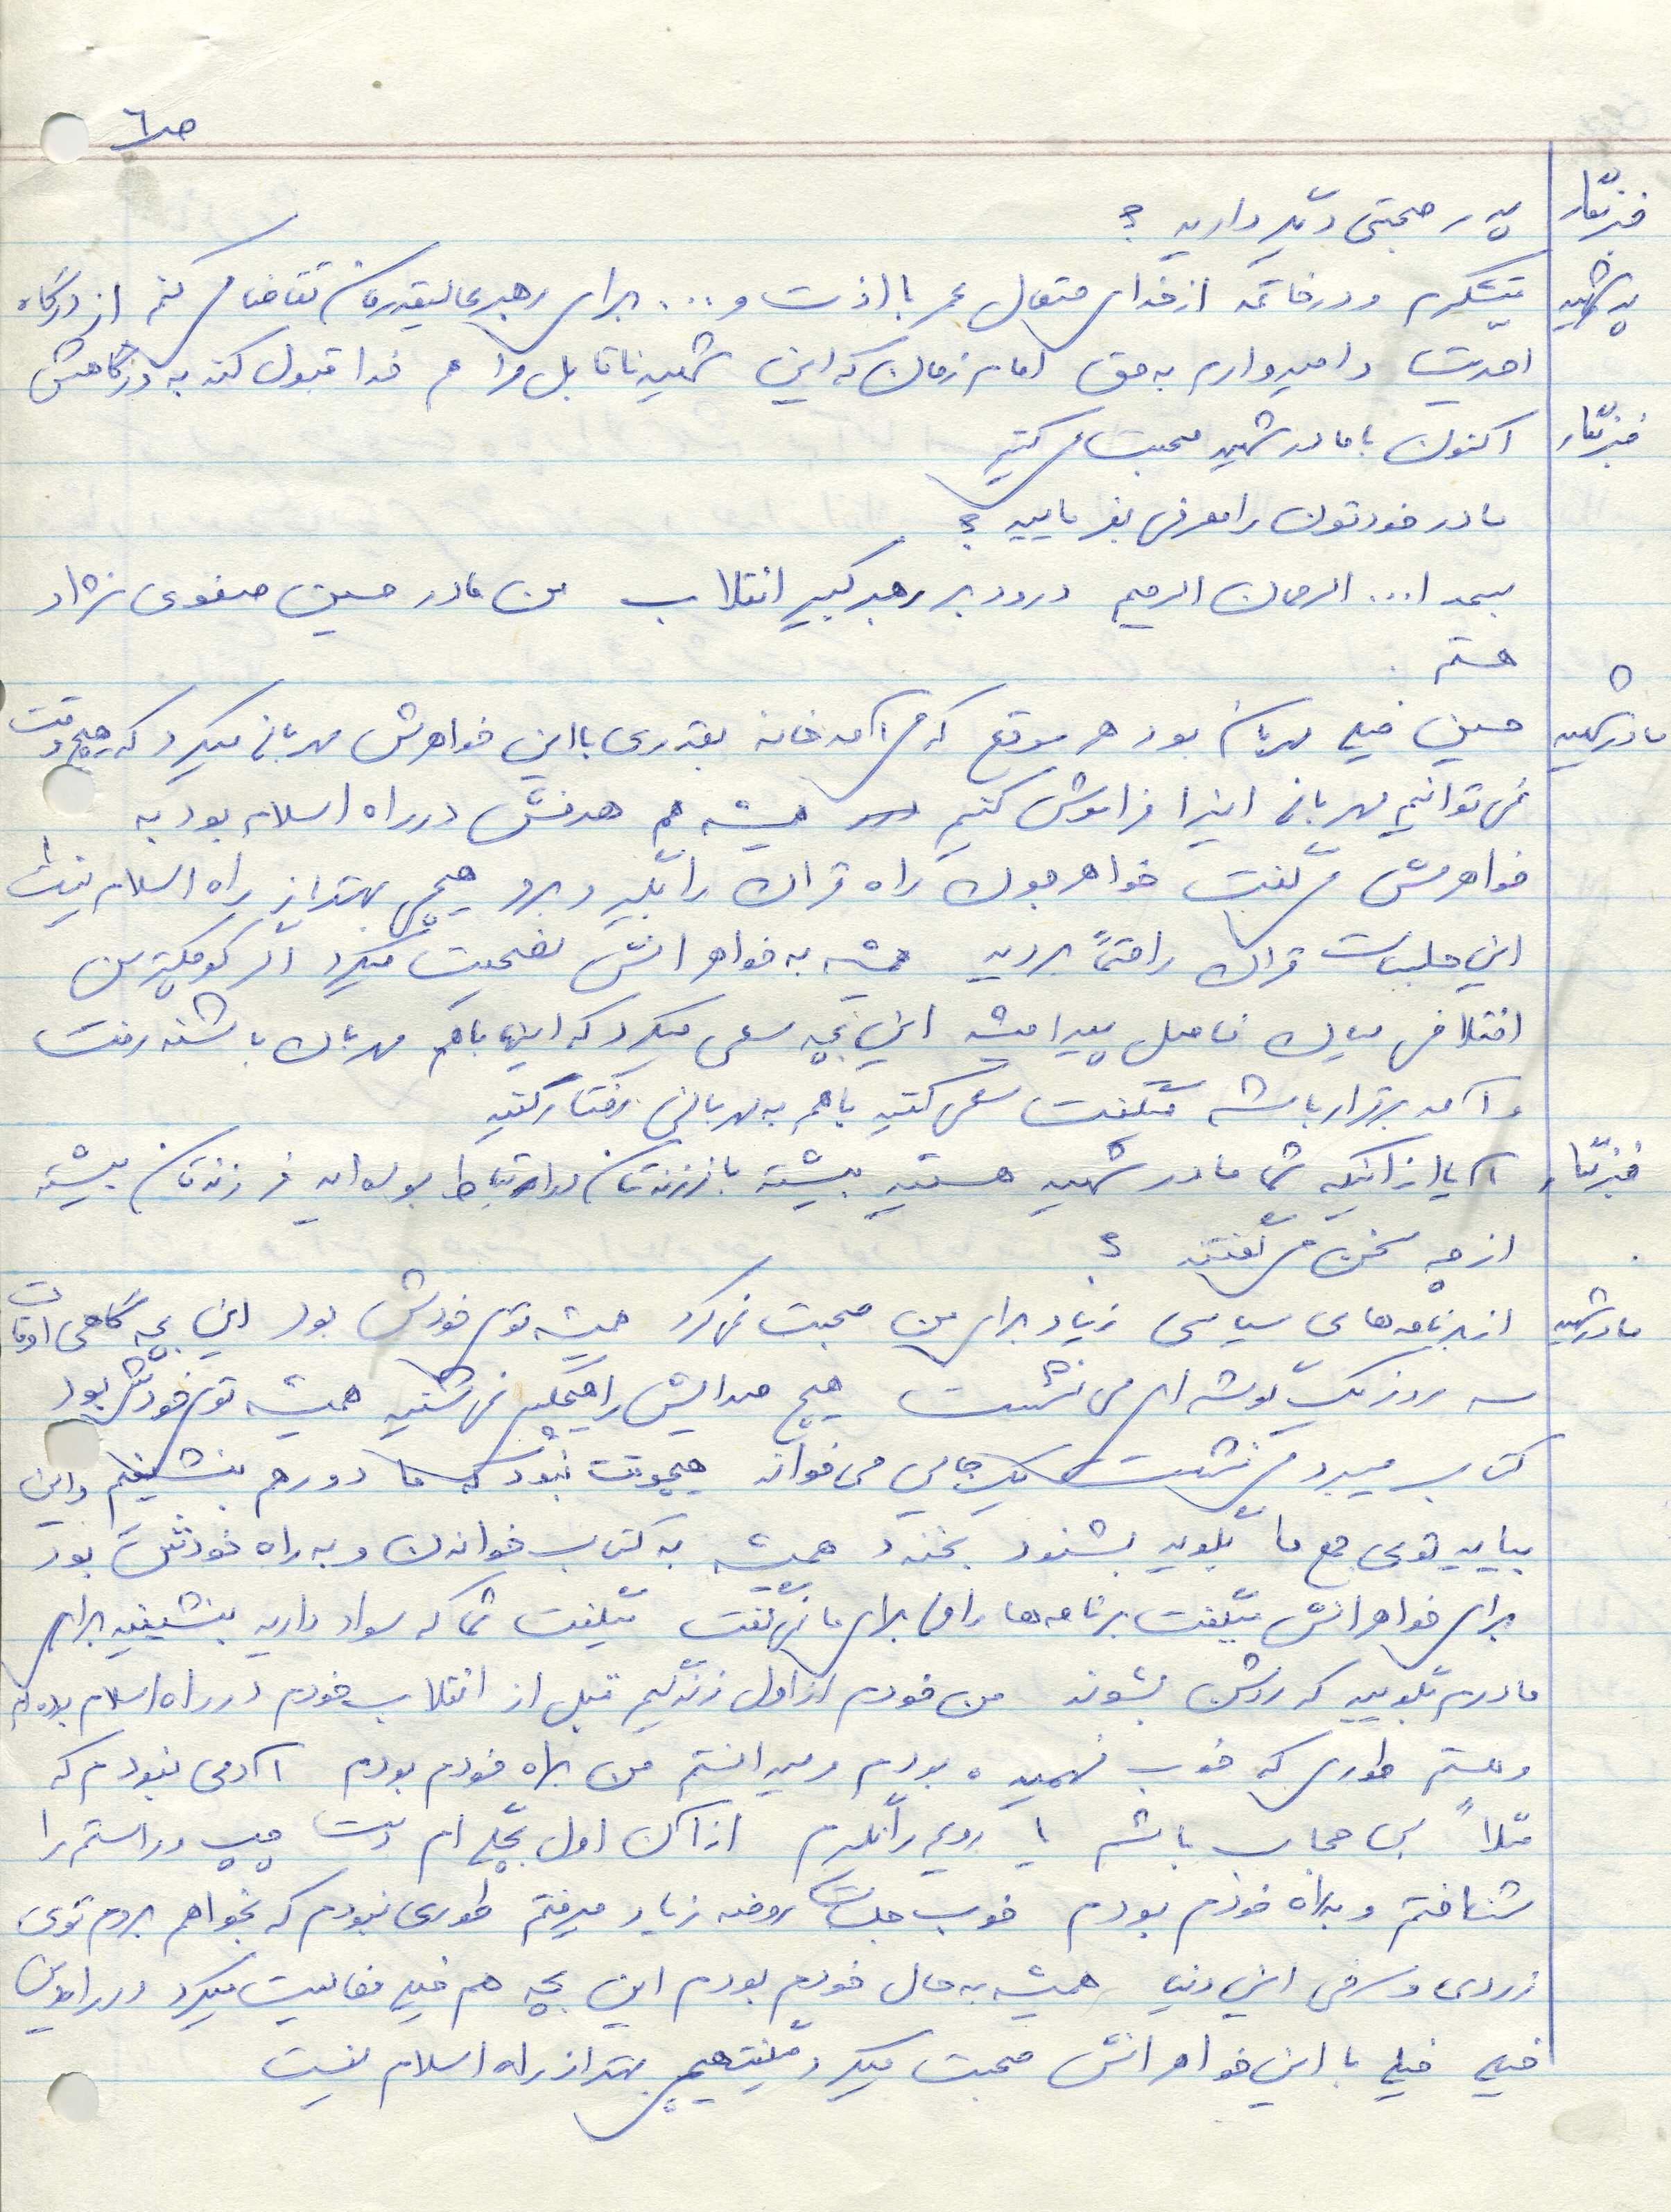 ص ٦
خبرنگار پدر صحبتی دیگر دارید ؟
پدر شهید متشکرم و در خاتمه از خدای متعال عمر با اذت و ... برای رهبر عالیقدرمان تقاضا می کنم از درگاه
احدیت و امیدوارم به حق امام زمان که این شهید ناقابل مرا هم خدا قبول کند به درگاهش
خبرنگار اکنون با مادر شهید صحبت می کنیم
مادر خودتون را معرفی بفرمایید ؟
بسمه ا... الرحمان الرحیم درود بر رهبر کبیر انقلاب من مادر حسین صفوی نژاد
هستم .
مادر شهید حسین خیلی مهربان بود هر موقع که می آمد خانه بقدری با این خواهرش مهربانی میکرد که هیچوقت
نمی توانیم مهربانی اینرا فراموش کنیم همیشه هم هدفش در راه اسلام بود به
خواهرش می گفت خواهر جون راه قرآن را بگیر و برو هیچی بهتر از راه اسلام نیست
این جلسات قرآن را حتماً بروید همیشه به خواهرانش نصیحت میکرد اگر کوچکترین
اختلافی میان فامیل پیدا میشه این بچه سعی میکرد که اینها باهم مهربان باشند رفت
و آمد برقرار باشه میگفت سعی کنید باهم به مهربانی رفتار کنید
خبرنگار آیا از اینکه شما مادر شهید هستید بیشتر با فرزندتان در ارتباط بوده اید فرزندتان بیشتر
از چه سخن می گفتند ؟
مادر شهید از برنامه های سیاسی زیاد برای من صحبت نمی کرد همیشه توی خودش بود این بچه گاهی اوقات
سه روز یک گوشه ای می نشست هیچ صدایش را هیچکس نمی شنید همیشه توی خودش بود
کتاب میبرد می نشست یک جایی می خواند هیچوقت نبود که ما دور هم بنشینیم و این
بیاید توی جمع ما بگوید بشنود بخندد همیشه به کتاب خواندن و به راه خودش بود
برای خواهرانش میگفت برنامه ها را ولی برای ما نمی گفت میگفت شما که سواد دارید بنشینید برای
مادرم بگویید که روشن بشوند من خودم از اول زندگیم قبل از انقلاب خودم در راه اسلام بوده ام
و هستم طوری که خوب فهمیده بودم و میدانستم من براه خودم بودم آدمی نبودم که
مثلاً بی حجاب باشم یا رویم را نگیرم از آن اول بچگی ام دست چپ و راستم را
شناختم و براه خودم بودم خوب جلسات روضه زیاد میرفتم طوری نبودم که بخواهم بروم توی
زردی و سرخی این دنیا همیشه به حال خودم بودم این بچه هم خیلی فعالیت میکرد در
خیلی خیلی با این خواهرانش صحبت میکرد میگفت هیچی بهتر از راه اسلام نیست